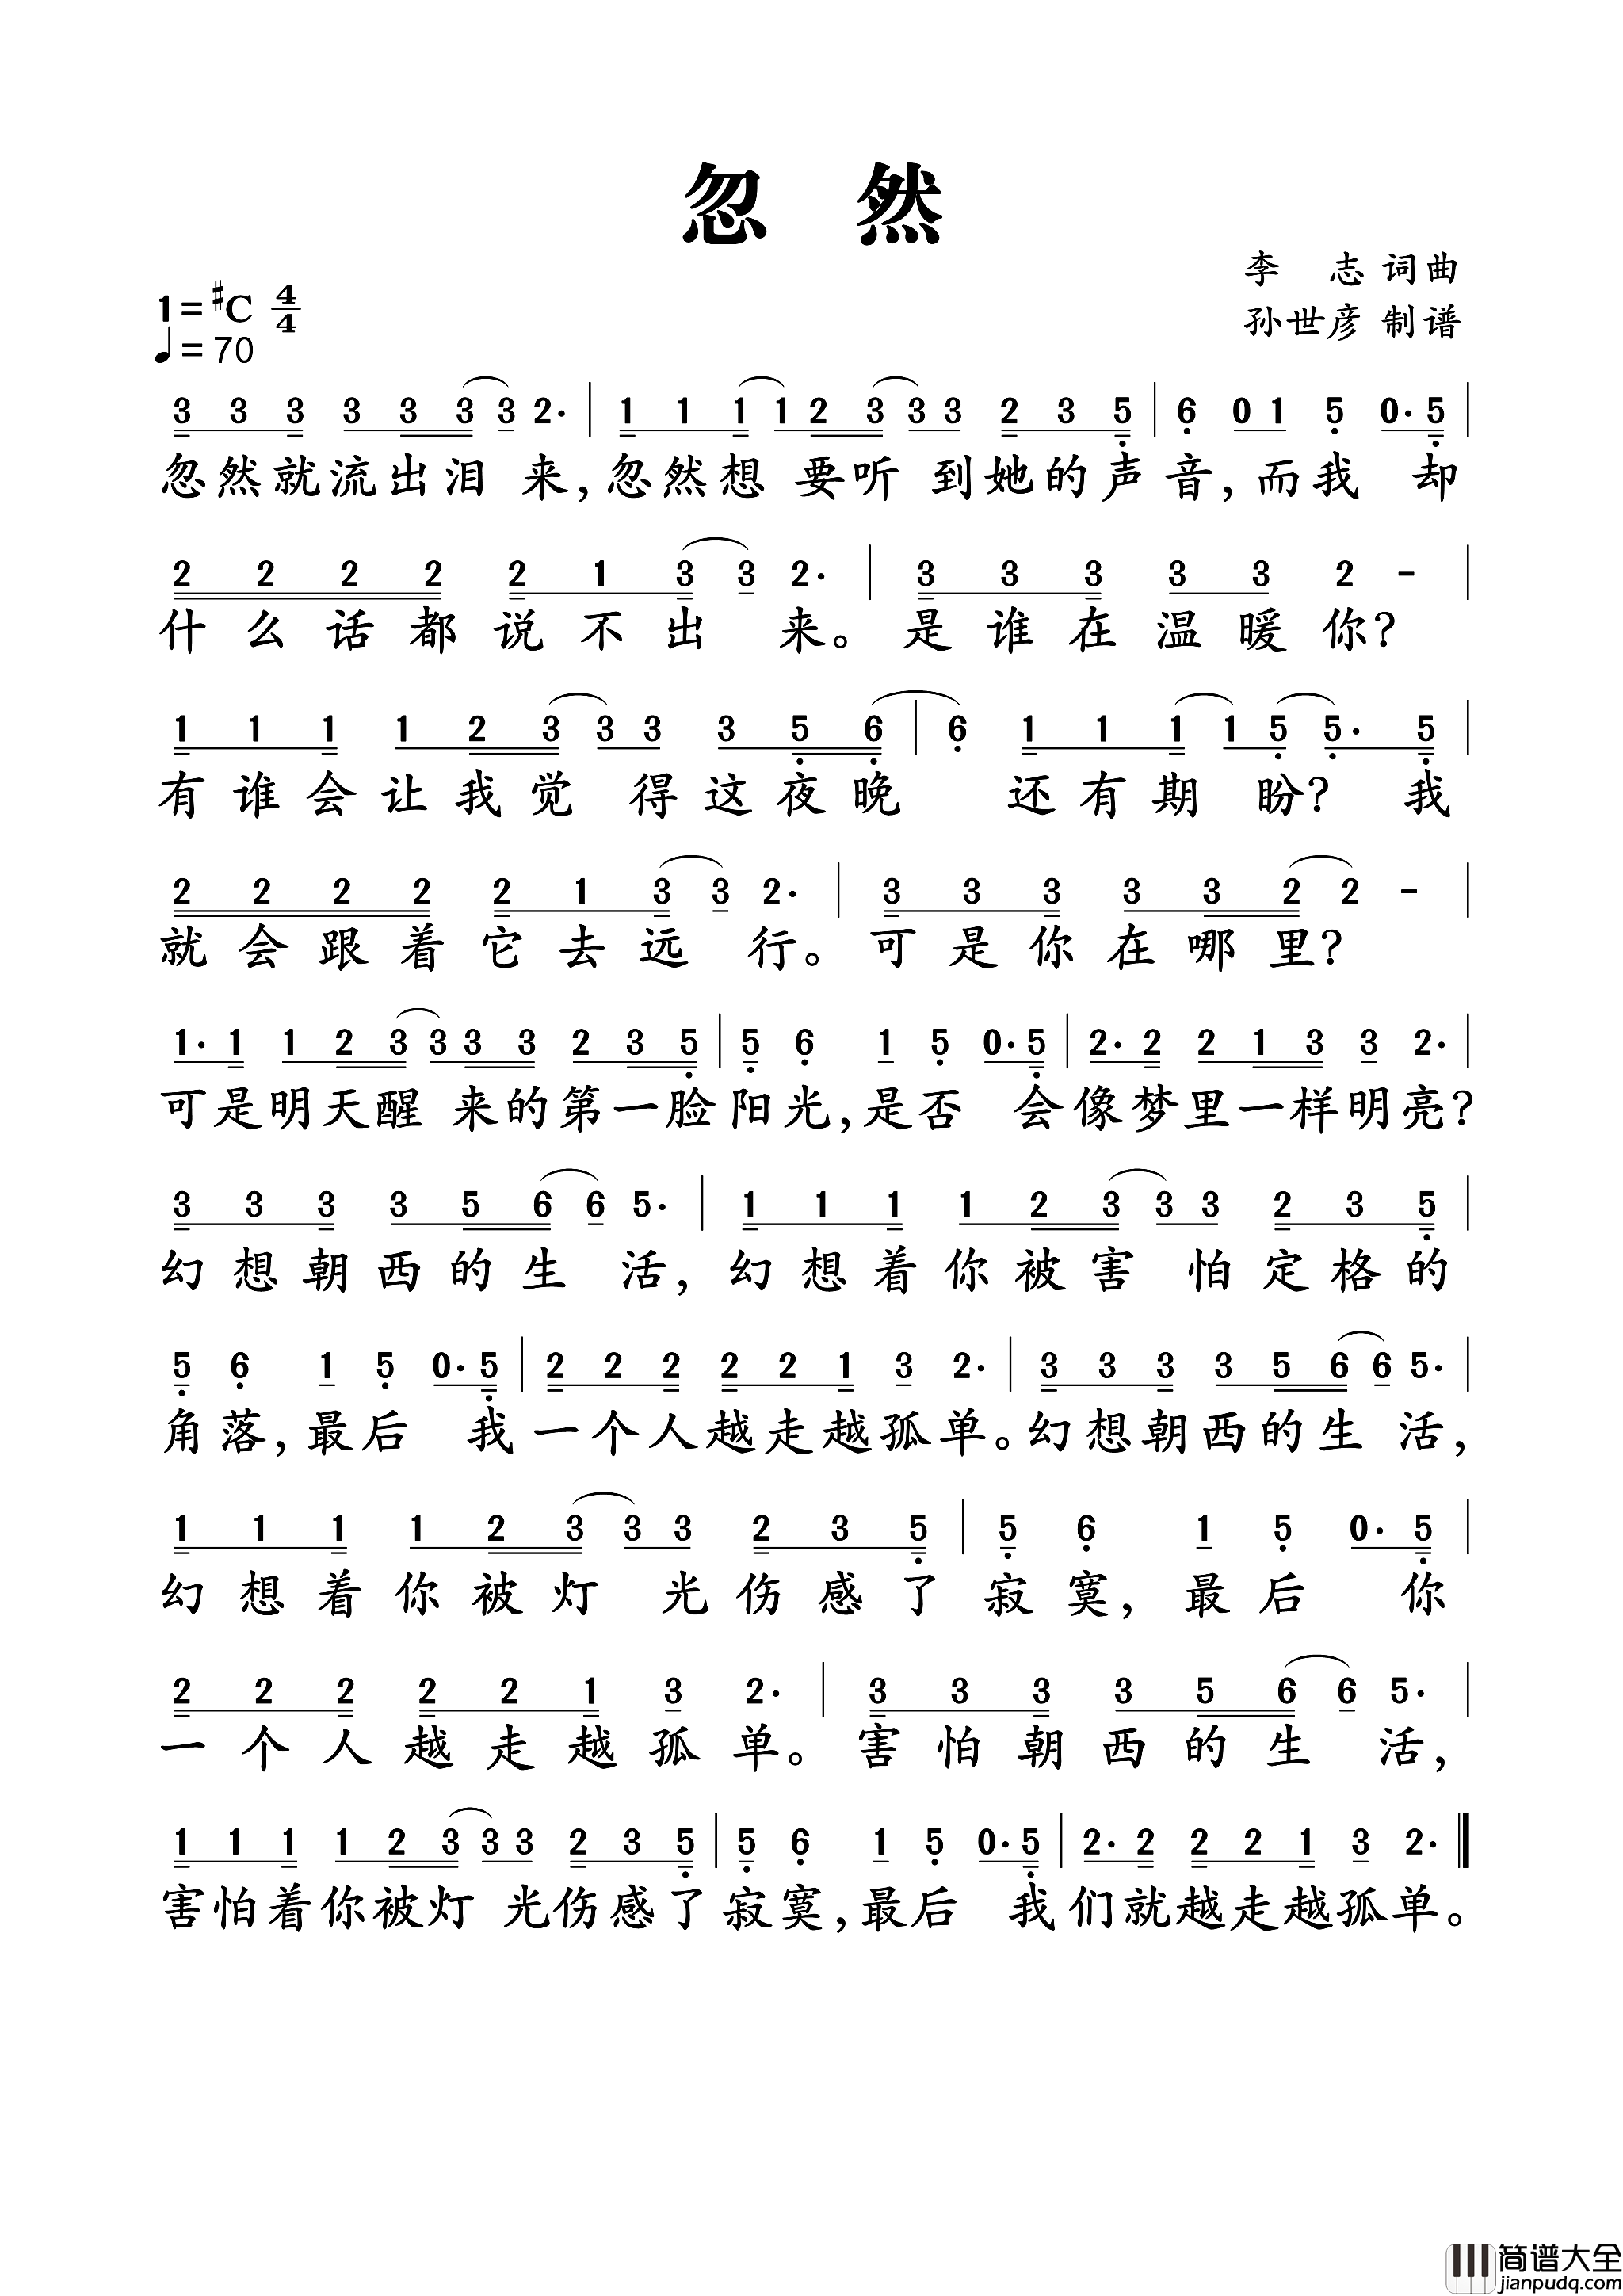 忽 然
李 志 词曲
1=#C 4/4
孙世彦 制谱
♩=70
3 3 3 3 3 3 3 2· | 1 1 1 1 2 3 3 3 2 3 5 | 6 0 1 5 0· 5 |
忽然就流出泪 来,忽然想 要听 到她的声音,而我 却
2 2 2 2 2 1 3 3 2· | 3 3 3 3 3 2 - |
什么话都说不出 来。是谁在温暖你?
1 1 1 1 2 3 3 3 3 5 6 | 6 1 1 1 1 5 5· 5 |
有谁会让我觉 得这夜晚 还有期 盼? 我
2 2 2 2 2 1 3 3 2· | 3 3 3 3 3 2 2 - |
就会跟着它去远 行。可是你在哪里?
1· 1 1 2 3 3 3 3 2 3 5 | 5 6 1 5 0· 5 | 2· 2 2 1 3 3 2· |
可是明天醒 来的第一脸阳光,是否 会像梦里一样明亮?
3 3 3 3 5 6 6 5· | 1 1 1 1 2 3 3 3 2 3 5 |
幻想朝西的生 活,幻想着你被害 怕定格的
5 6 1 5 0· 5 | 2 2 2 2 2 1 3 2· | 3 3 3 3 5 6 6 5· |
角落,最后 我一个人越走越孤单。幻想朝西的生 活,
1 1 1 1 2 3 3 3 2 3 5 | 5 6 1 5 0· 5 |
幻想着你被灯 光伤感了寂寞,最后 你
2 2 2 2 2 1 3 2· | 3 3 3 3 5 6 6 5· |
一个人越走越孤单。害怕朝西的生 活,
1 1 1 1 2 3 3 3 2 3 5 | 5 6 1 5 0· 5 | 2· 2 2 2 1 3 2· ‖
害怕着你被灯 光伤感了寂寞,最后 我们就越走越孤单。
简谱大全
jianpudq.com